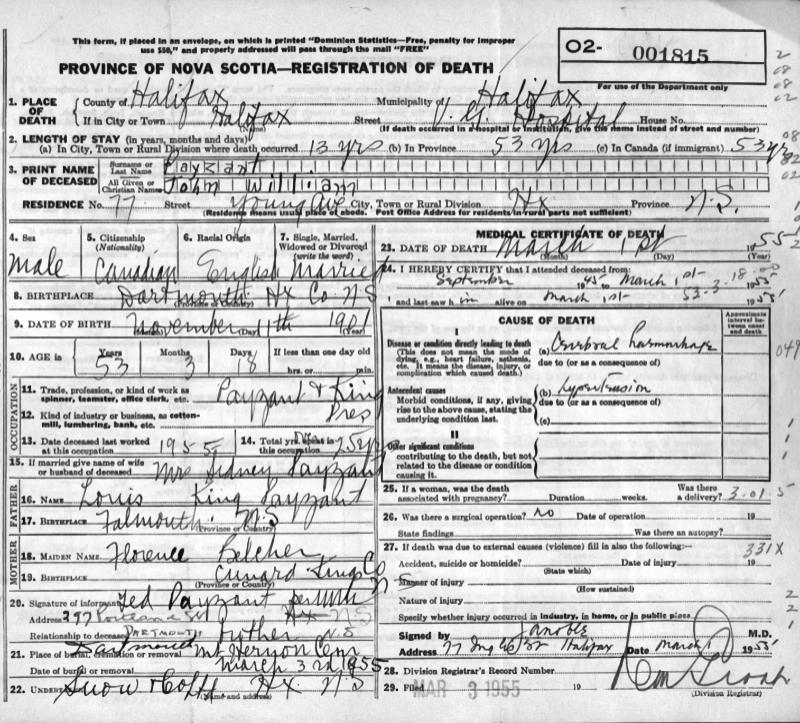 This form, if placed in an envelope, on which is printed "Dominion Statistics—Free, penalty for improper
use $50," and properly addressed will pass through the mail "FREE"
O2- 001815
For use of the Department only
PROVINCE OF NOVA SCOTIA—REGISTRATION OF DEATH
1. PLACE OF DEATH County of Halifax Municipality of Halifax
If in City or Town Halifax Street V. G. Hospital House No.
(Name) (If death occurred in a hospital or institution, give the name instead of street and number)
2. LENGTH OF STAY (in years, months and days)
(a) In City, Town or Rural Division where death occurred 13 yrs (b) In Province 53 yrs (c) In Canada (if immigrant) 53 yrs
3. PRINT NAME OF DECEASED Surname or Last Name Payzant
All Given or Christian Names John William
RESIDENCE No. 77 Street Young Ave City, Town or Rural Division Hx Province N.S.
(Residence means usual place of abode. Post Office Address for residents in rural parts not sufficient)
4. Sex 5. Citizenship (Nationality) 6. Racial Origin 7. Single, Married, Widowed or Divorced (write the word)
male Canadian English Married
8. BIRTHPLACE Dartmouth Hx Co N S
(Province or Country)
9. DATE OF BIRTH November 11th 1901
(Month) (Day) (Year)
10. AGE in Years Months Days If less than one day old
53 3 18 hrs. or min.
OCCUPATION
11. Trade, profession, or kind of work as spinner, teamster, office clerk, etc. Payzant & King
12. Kind of industry or business, as cotton-mill, lumbering, bank, etc. Pres
13. Date deceased last worked at this occupation 1955 14. Total yrs. spent in this occupation 25 yrs
15. If married give name of wife or husband of deceased Mrs Sidney Payzant
FATHER
16. NAME Louis King Payzant
17. BIRTHPLACE Falmouth N S
(Province or Country)
MOTHER
18. MAIDEN NAME Florence Belcher
19. BIRTHPLACE Cunard Kings Co N S
(Province or Country)
20. Signature of informant Ted Payzant
Address 297 Portland St Hx N S
Relationship to deceased Brother DARTMOUTH N S
21. Place of burial, cremation or removal Dartmouth Mt Hermon Cem
Date of burial or removal March 3rd 1955
22. Undertaker Snow & Co Hx. N S
(Name and address)
MEDICAL CERTIFICATE OF DEATH
23. DATE OF DEATH March 1st 1955
(Month) (Day) (Year)
24. I HEREBY CERTIFY that I attended deceased from:
September 1945 to March 1st 1955
and last saw him alive on March 1st 1955
53-3-18
CAUSE OF DEATH
Approximate interval between onset and death
I
Disease or condition directly leading to death (a) Cerebral haemorrhage
(This does not mean the mode of dying, e.g., heart failure, asthenia, etc. It means the disease, injury, or complication which caused death.)
due to (or as a consequence of)
Antecedent causes (b) hypertension
Morbid conditions, if any, giving rise to the above cause, stating the underlying condition last.
due to (or as a consequence of)
(c)
II
Other significant conditions
contributing to the death, but not related to the disease or condition causing it.
25. If a woman, was the death associated with pregnancy? Duration weeks. Was there a delivery? 3-01-5
26. Was there a surgical operation? No Date of operation 19
State findings Was there an autopsy?
27. If death was due to external causes (violence) fill in also the following:— 331X
Accident, suicide or homicide? Date of injury 19
(State which)
Manner of injury
(How sustained)
Nature of injury
Specify whether injury occurred in industry, in home, or in public place.
Signed by M.D.
Address Halifax Date March 1955
28. Division Registrar's Record Number
29. Filed MAR 3 1955 19
(Division Registrar)